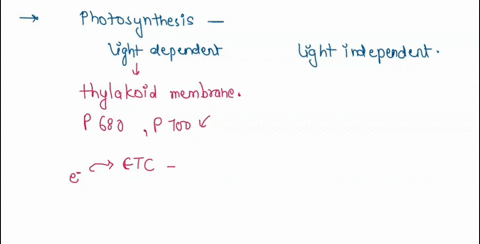 → Photosynthesis —
light dependent light independent.
↓
thylakoid membrane.
P 680 , P 700 ✓
e⁻ → ETC –